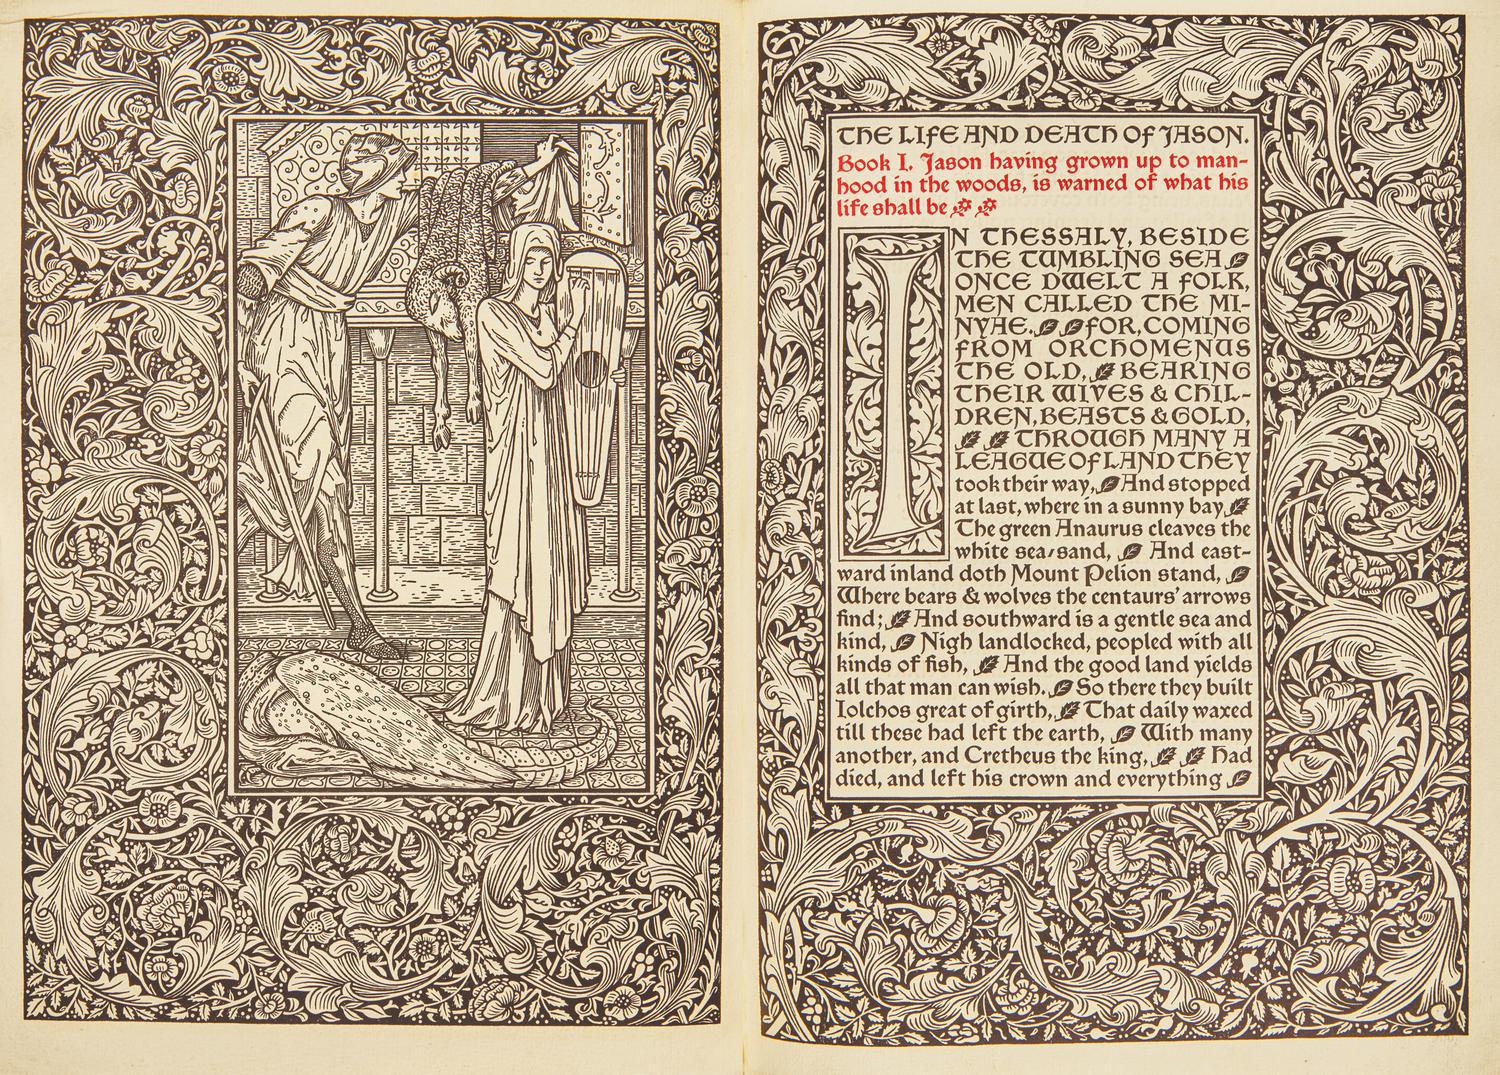 THE LIFE AND DEATH OF JASON.
Book I. Jason having grown up to man-
hood in the woods, is warned of what his
life shall be
IN THESSALY, BESIDE
THE TUMBLING SEA
ONCE DWELT A FOLK,
MEN CALLED THE MI-
NYAE. FOR, COMING
FROM ORCHOMENUS
THE OLD, BEARING
THEIR WIVES & CHIL-
DREN, BEASTS & GOLD,
THROUGH MANY A
LEAGUE OF LAND THEY
took their way, And stopped
at last, where in a sunny bay
The green Anaurus cleaves the
white sea-sand, And east-
ward inland doth Mount Pelion stand,
Where bears & wolves the centaurs' arrows
find; And southward is a gentle sea and
kind, Nigh landlocked, peopled with all
kinds of fish, And the good land yields
all that man can wish. So there they built
Iolchos great of girth, That daily waxed
till these had left the earth, With many
another, and Cretheus the king, Had
died, and left his crown and everything